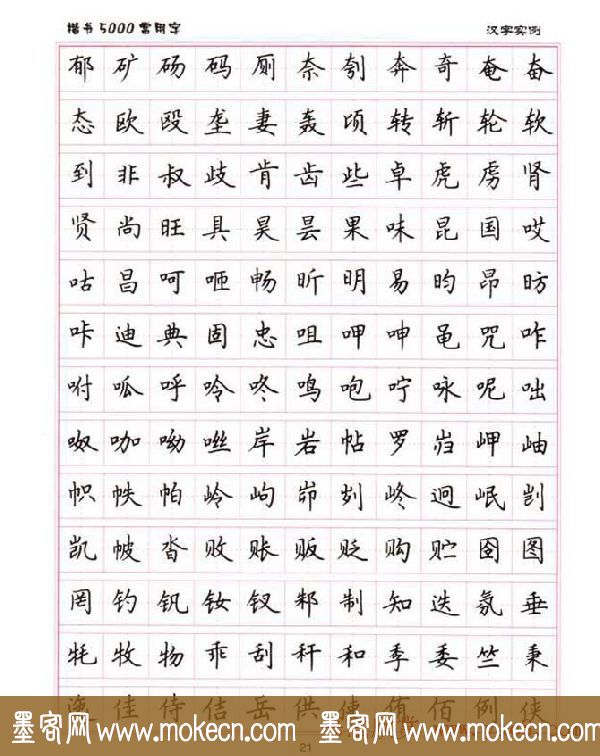 楷书5000常用字 汉字实例
郁矿砀码厕奈刳奔奇奄奋
态欧殴垄妻轰顷转斩轮软
到非叔歧肯齿些卓虎虏肾
贤尚旺具昊昙果味昆国哎
咕昌呵咂畅昕明易昀昂昉
咔迪典固忠咀呷呻黾咒咋
咐呱呼呤咚鸣咆咛咏呢咄
呶咖呦咝岸岩帖罗岿岬岫
帜帙帕岭岣峁刿峂迥岷剀
凯帔沓败账贩贬购贮囹图
罔钓钒钕钗邾制知迭氛垂
牦牧物乖刮秆和季委竺秉
佳侍佶岳供使侑佰例侠
墨客网 www.mokecn.com 墨客网 www.mokecn.com
21